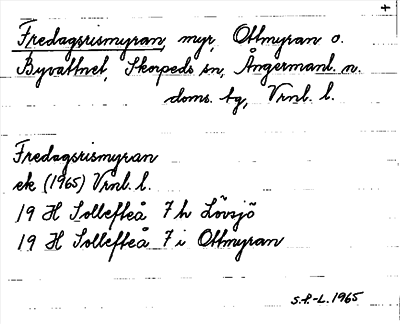 +
Fredagsrismyran, myr, Ottmyran o.
Byvattnet, Skorpeds sn, Ångermanl. n.
doms. tg, Vrnl. l.
Fredagsrismyran
ek (1965) Vrnl. l.
19 H Sollefteå 7 h Lövsjö
19 H Sollefteå 7 i Ottmyran
S.F.-L. 1965